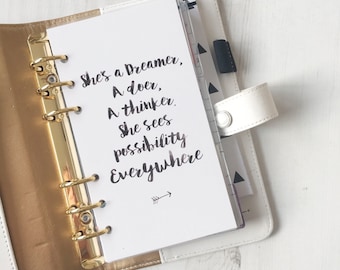 She's a Dreamer,
A doer,
A thinker.
She sees
possibility
Everywhere